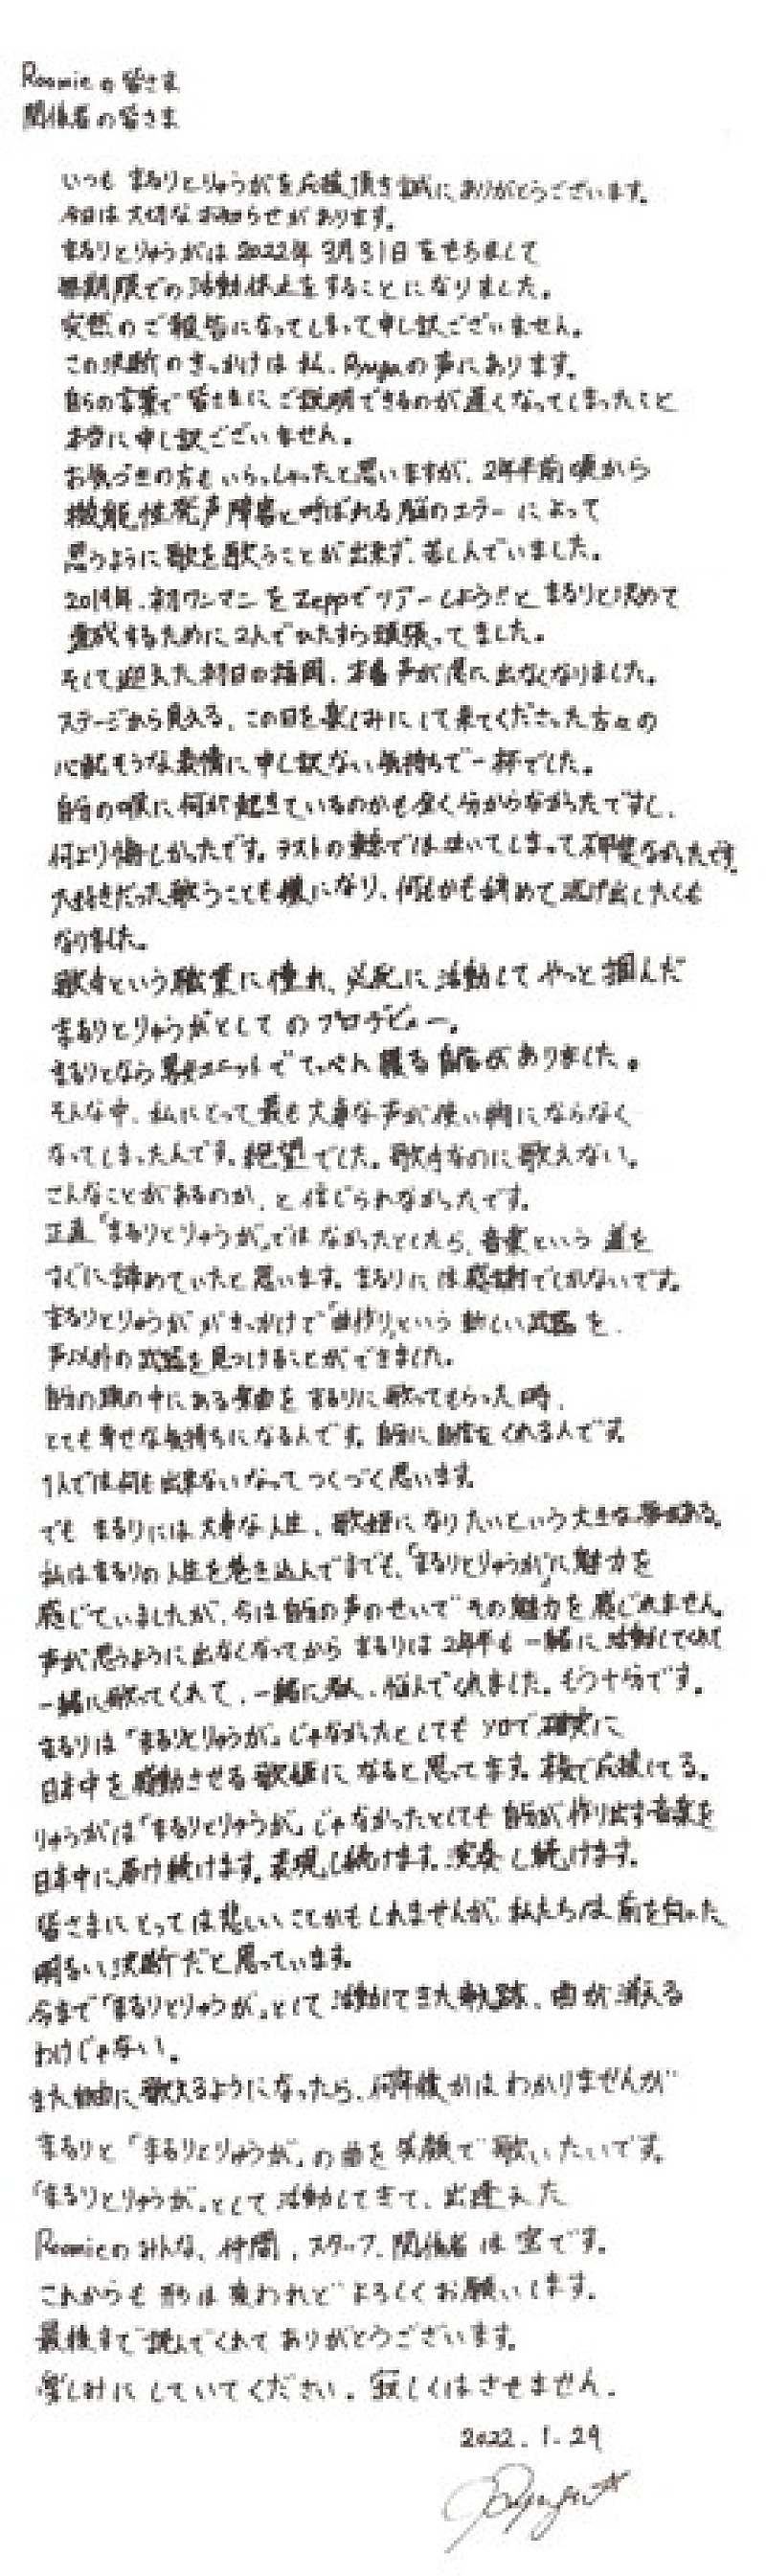 Roomieの皆さま
関係者の皆さま
いつも まるりとりゅうがを応援頂き誠にありがとうございます。
今日は大切なお知らせがあります。
まるりとりゅうがは2022年3月31日をもちまして
無期限での活動休止をすることになりました。
突然のご報告になってしまって申し訳ございません。
この決断のきっかけは私、Ryugaの声にあります。
自らの言葉で皆さまにご説明できるのが遅くなってしまったこと
本当に申し訳ございません。
お気づきの方もいらっしゃったと思いますが、2年半前頃から
機能性発声障害と呼ばれる脳のエラーによって
思うように歌を歌うことが出来ず、苦しんでいました。
2019年、初ワンマンをZeppでツアーしよう!とまるりと決めて
達成するために2人でひたすら頑張ってました。
そして迎えた初日の福岡、本番声が急に出なくなりました。
ステージから見える、この日を楽しみにして来てくださった方々の
心配そうな表情に申し訳ない気持ちで一杯でした。
自分の喉に何が起きているのかも全く分からなかったですし、
何より悔しかったです。ゲストの では泣いてしまって不甲斐なかったです。
大好きだった歌うことも嫌になり、何もかも辞めて逃げ出したくも
なりました。
歌手という職業に憧れ、必死に活動してやっと掴んだ
まるりとりゅうがとしてのプロデビュー。
まるりとなら男女ユニットでてっぺん獲る自信がありました。
そんな中、私にとって最も大事な声が使い物にならなく
なってしまったんです。絶望でした。歌手なのに歌えない。
こんなことがあるのか、と信じられなかったです。
正直「まるりとりゅうが」ではなかったとしたら、音楽という道を
すぐに諦めていたと思います。まるりには感謝でしかないです。
まるりとりゅうががきっかけで「曲作り」という新しい武器を、
声以外の武器を見つけることができました。
自分の頭の中にある楽曲をまるりに歌ってもらった時、
とても幸せな気持ちになるんです。自分に自信をくれる人です。
1人では何も出来ないなってつくづく思います。
でも まるりには大事な人生、歌姫になりたいという大きな夢がある。
私はまるりの人生を巻き込んでまでも、「まるりとりゅうが」に魅力を
感じていましたが、今は自分の声のせいでその魅力を感じれません。
声が思うように出なくなってから まるりは2年半も一緒に活動してくれて
一緒に歌ってくれて、一緒に 、悩んでくれました。もう十分です。
まるりは「まるりとりゅうが」じゃなかったとしてもソロで確実に
日本中を感動させる歌姫になると思ってます。本気で応援してる。
りゅうがは「まるりとりゅうが」じゃなかったとしても自分が作り出す音楽を
日本中に届け続けます。表現し続けます。演奏し続けます。
皆さまにとっては悲しいことかもしれませんが、私たちは前を向いた
明るい決断だと思っています。
今まで「まるりとりゅうが」として活動してきた軌跡、曲が消える
わけじゃない。
また自由に歌えるようになったら、何年後かはわかりませんが
まるりと「まるりとりゅうが」の曲を笑顔で歌いたいです。
「まるりとりゅうが」として活動してきて、出逢えた
Roomieのみんな、仲間、スタッフ、関係者は宝です。
これからも形は変われどよろしくお願いします。
最後まで読んでくれてありがとうございます。
楽しみにしていてください。寂しくはさせません。
2022.1.29
Ryuga